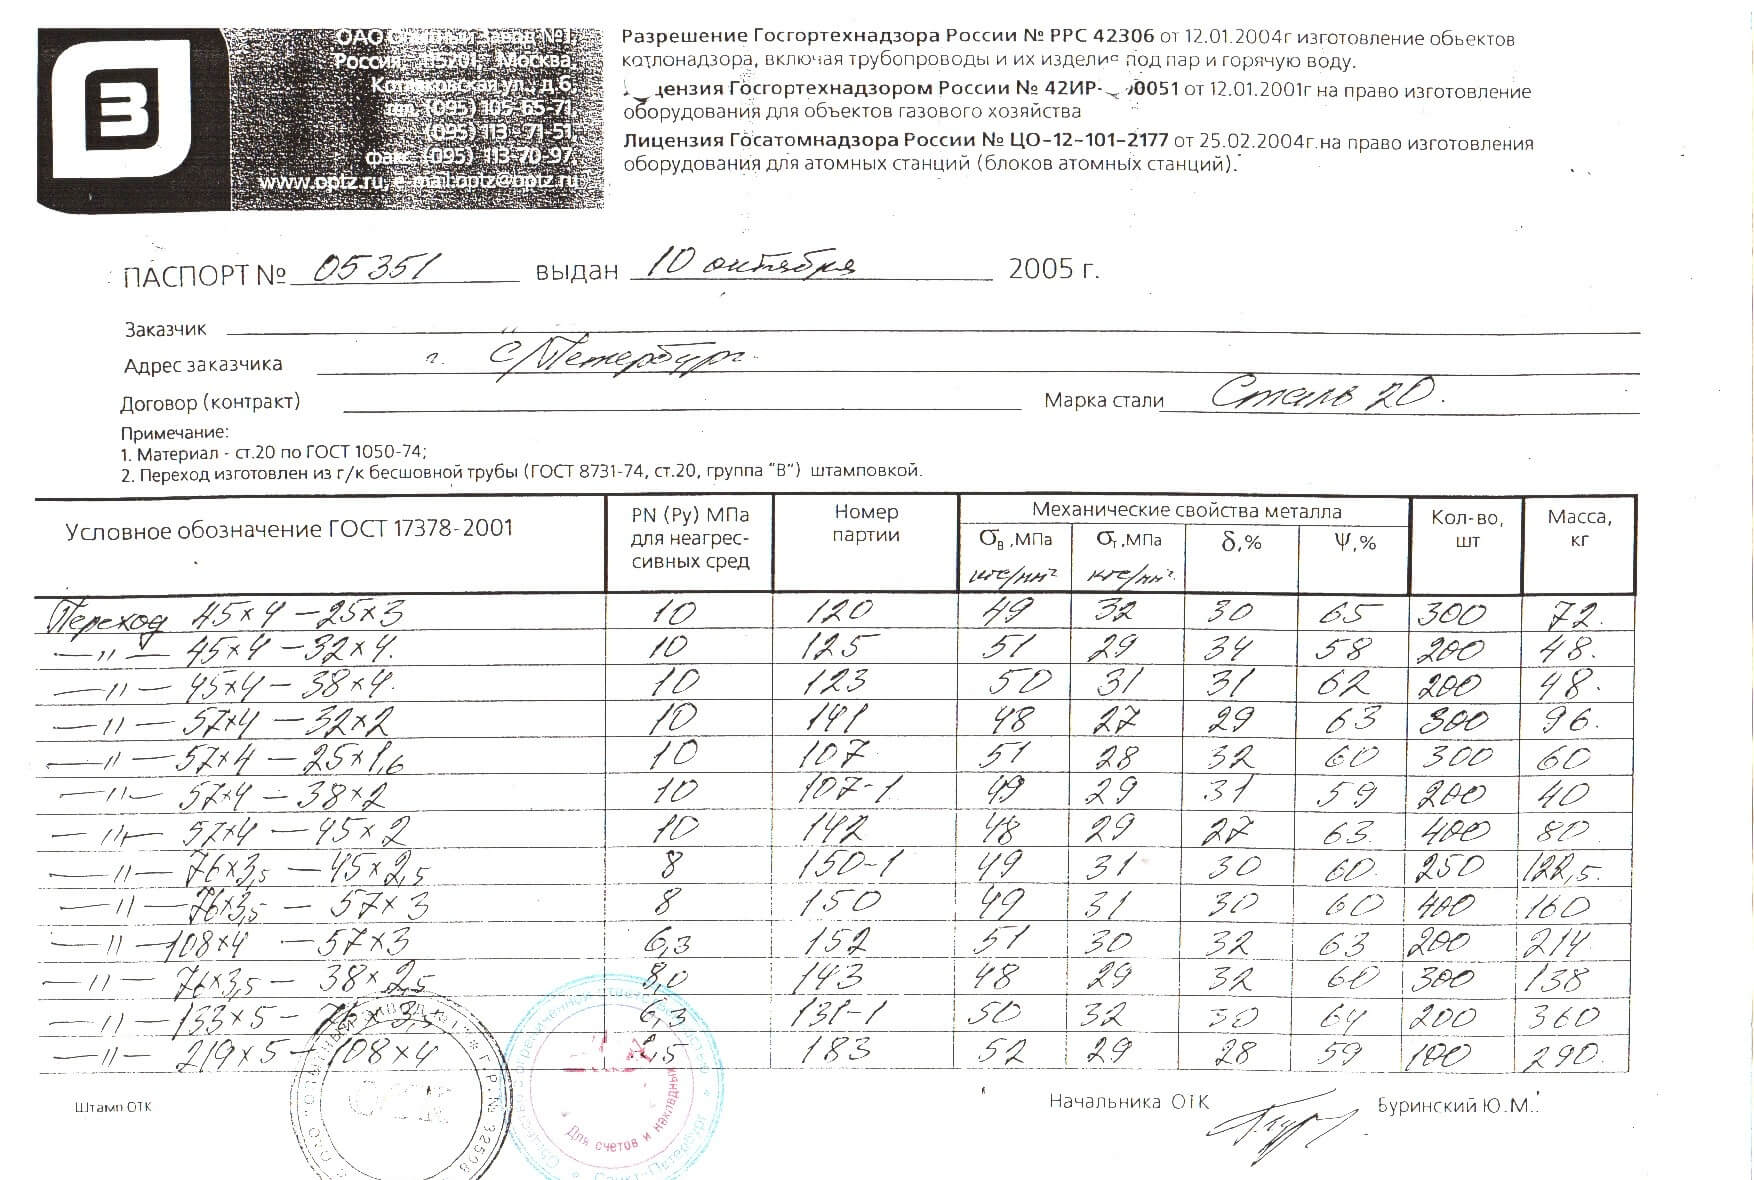 ОАО Опытный Завод №1
Россия, 115201 Москва,
Котляковская ул., д.6
тел. (095) 105-65-71
(095) 113-71-51
факс (095) 113-70-97
www.optz.ru, e-mail:optz@optz.ru
Разрешение Госгортехнадзора России № РРС 42306 от 12.01.2004г изготовление обьектов
котлонадзора, включая трубопроводы и их изделия под пар и горячую воду.
Лицензия Госгортехнадзором России № 42ИР- 00051 от 12.01.2001г на право изготовление
оборудования для объектов газового хозяйства
Лицензия Госатомнадзора России № ЦО-12-101-2177 от 25.02.2004г.на право изготовления
оборудования для атомных станций (блоков атомных станций).
ПАСПОРТ № 05351 выдан 10 октября 2005 г.
Заказчик
Адрес заказчика г. С/Петербург.
Договор (контракт) Марка стали Сталь 20.
Примечание:
1. Материал - ст.20 по ГОСТ 1050-74;
2. Переход изготовлен из г/к бесшовной трубы (ГОСТ 8731-74, ст.20, группа "В") штамповкой.
Условное обозначение ГОСТ 17378-2001 PN (Ру) МПа для неагрес-сивных сред Номер партии Механические свойства металла Кол-во, шт Масса, кг
σв ,МПа кгс/мм² σт ,МПа кгс/мм² δ,% ψ,%
Переход 45×4 – 25×3 10 120 49 32 30 65 300 72.
— " — 45×4 – 32×4. 10 125 51 29 34 58 200 48.
— " — 45×4 – 38×4. 10 123 50 31 31 62 200 48.
— " — 57×4 – 32×2 10 141 48 27 29 63 300 96.
— " — 57×4 – 25×1,6 10 107 51 28 32 60 300 60
— " — 57×4 – 38×2 10 107-1 49 29 31 59 200 40
— " — 57×4 – 45×2 10 142 48 29 27 63 400 80
— " — 76×3,5 – 45×2,5 8 150-1 49 31 30 60 250 122,5.
— " — 76×3,5 – 57×3 8 150 49 31 30 60 400 160
— " — 108×4 – 57×3 6,3 152 51 30 32 63 200 214
— " — 76×3,5 – 38×2,5 8,0 143 48 29 32 60 300 138
— " — 133×5 – 76×3,5 6,3 131-1 50 32 30 64 200 360
— " — 219×5 – 108×4 2,5 183 52 29 28 59 100 290.
Штамп ОТК
Начальника ОТК Буринский Ю.М.
ОАО "ОПЫТНЫЙ ЗАВОД №1" * Г.Р.№ 32508
ОТК
Общество с ограниченной ответственностью
Для счетов и накладных
Санкт-Петербург